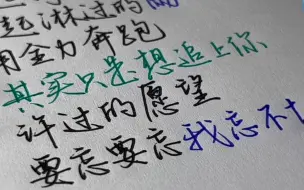 淋过的
用全力奔跑
其实只是想追上你
许过的愿望
要忘要忘我忘不